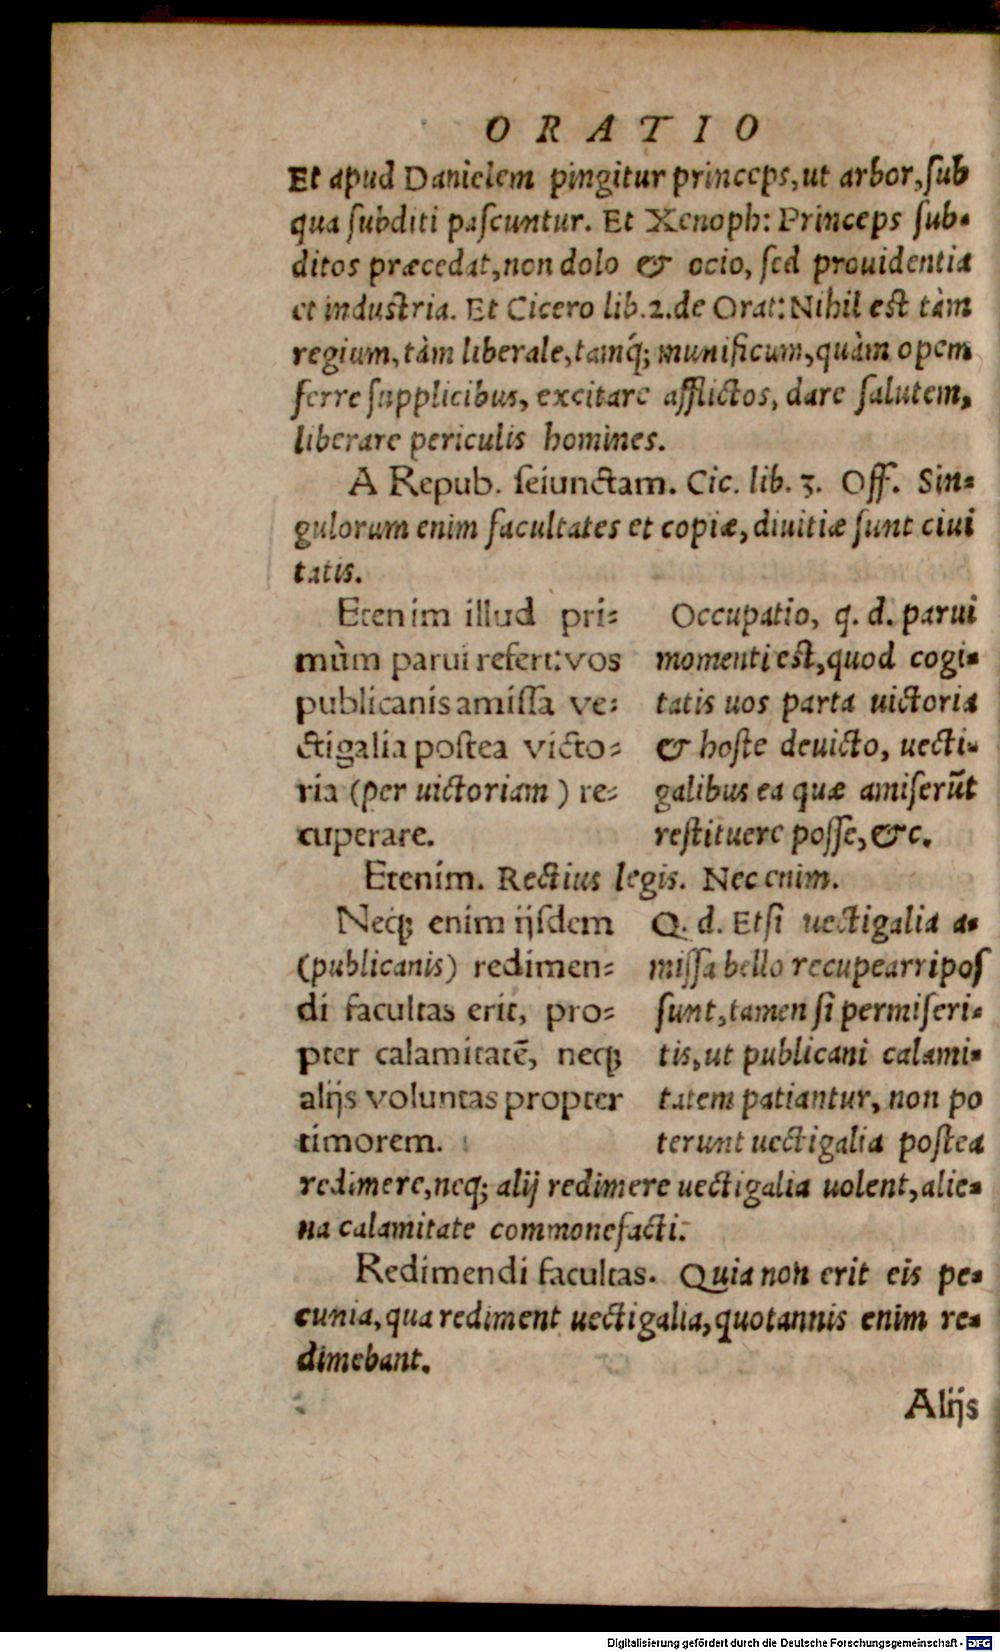 ORATIO
Et apud Danielem pingitur princeps, ut arbor, ſub
qua ſubditi paſcuntur. Et Xenoph: Princeps ſub-
ditos præcedat, non dolo & ocio, ſed prouidentia
et induſtria. Et Cicero lib. 2. de Orat: Nihil eſt tàm
regium, tàm liberale, tamq́; munificum, quàm opem
ferre ſupplicibus, excitare afflictos, dare ſalutem,
liberare periculis homines.
A Repub. ſeiunctam. Cic. lib. 3. Off. Sin-
gulorum enim facultates et copiæ, diuitiæ ſunt ciui
tatis.
Etenim illud pri-
mùm parui refert: vos
publicanis amiſſa ve-
ctigalia poſtea victo-
ria (per uictoriam) re-
cuperare.
Occupatio, q. d. parui
momenti eſt, quod cogi-
tatis uos parta uictoria
& hoſte deuicto, uecti-
galibus ea quæ amiſerūt
reſtituere poſſe, &c.
Etenim. Rectius legis. Nec enim.
Neq; enim ijſdem
(publicanis) redimen-
di facultas erit, pro-
pter calamitatē, neq;
alijs voluntas propter
timorem.
Q. d. Etſi uectigalia a-
miſſa bello recupearri poſ
ſunt, tamen ſi permiſeri-
tis, ut publicani calami-
tatem patiantur, non po
terunt uectigalia poſtea
redimere, neq; alij redimere uectigalia uolent, alie-
na calamitate commonefacti.
Redimendi facultas. Quia non erit eis pe-
cunia, qua rediment uectigalia, quotannis enim re-
dimebant.
Alijs
Digitalisierung gefördert durch die Deutsche Forschungsgemeinschaft - DFG